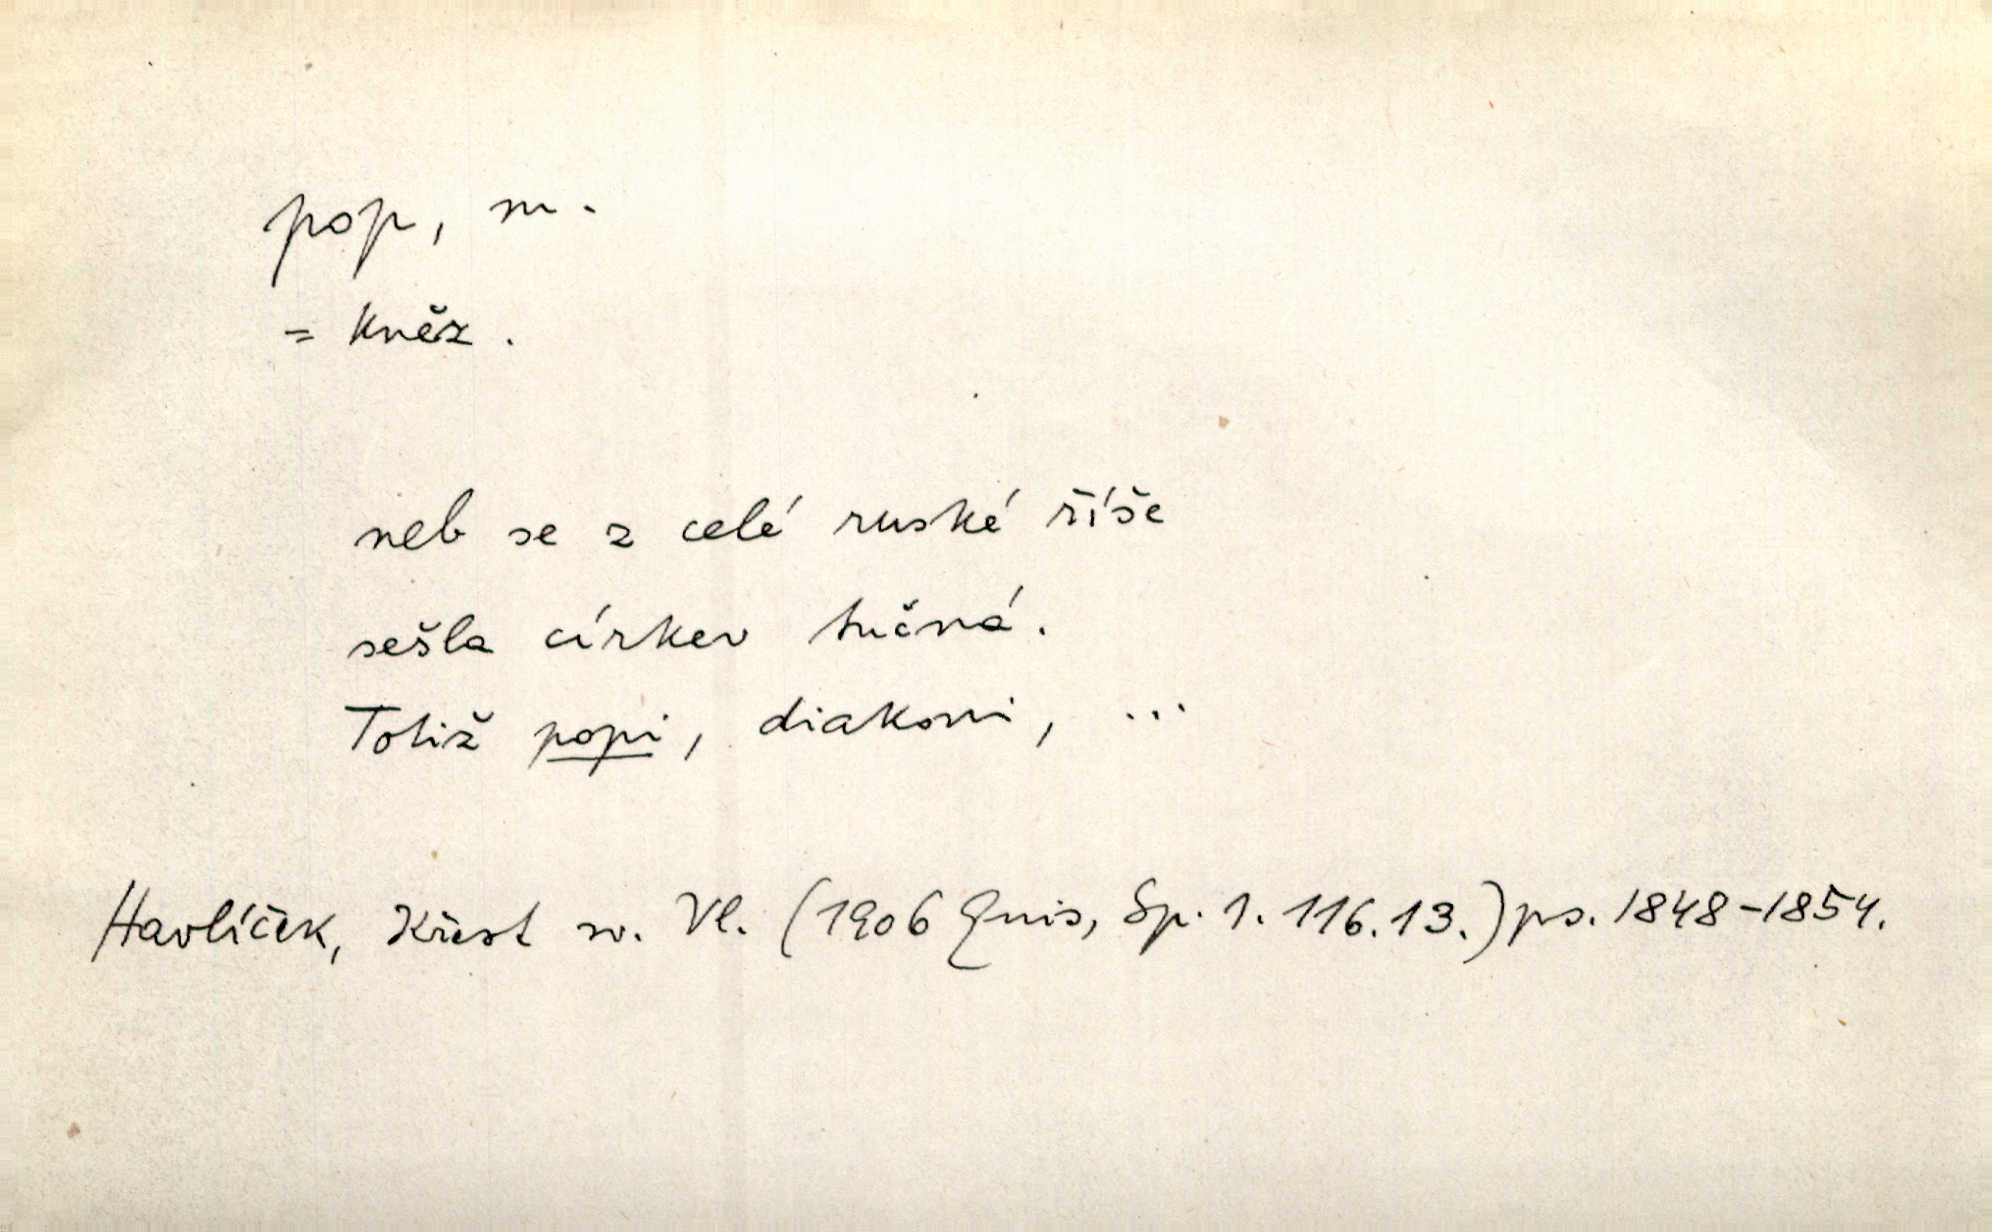 pop, m.
= kněz.
neb se z celé ruské říše
sešla církev tučná.
Totiž popi, diakoni, ...
Havlíček, Křest sv. Vl. (1906 Quis, Sp. 1. 116.13.) ps. 1848-1854.